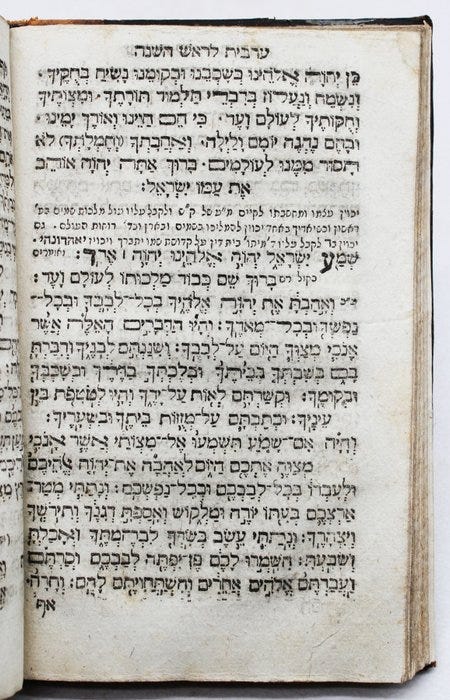 ערבית לראש השנה
כן יהוה אלהינו בשכבנו ובקומנו נשיח בחקיך.
ונשמח ונעלוז בדברי תלמוד תורתך. ומצותיך
וחקותיך לעולם ועד. כי הם חיינו ואורך ימינו.
ובהם נהגה יומם ולילה. ואהבתך (וחמלתך) לא
תסור ממנו לעולמים. ברוך אתה יהוה אוהב
את עמו ישראל:
יכוין עתה ומחשבתו לקיים מ״ע של ק״ש ולקבל עליו עול מלכות שמים בפ׳
ראשון וכשיאמר יהוה אחד יכוין להמליכו בשמים ובארץ וכד׳ רוחות העולם. גם
יכוין
שמע ישראל יהוה אלהינו יהוה אחד:
בקול רם ברוך שם כבוד מלכותו לעולם ועד:
ואהבת את יהוה אלהיך בכל־לבבך ובכל־
נפשך ובכל־מאדך: והיו הדברים האלה אשר
אנכי מצוך היום על־לבבך: ושננתם לבניך ודברת
בם בשבתך בביתך ובלכתך בדרך ובשכבך
ובקומך: וקשרתם לאות על־ידך והיו לטטפת בין
עיניך: וכתבתם על־מזזות ביתך ובשעריך:
והיה אם־שמע תשמעו אל־מצותי אשר אנכי
מצוה אתכם היום לאהבה את־יהוה אלהיכם
ולעבדו בכל־לבבכם ובכל־נפשכם: ונתתי מטר־
ארצכם בעתו יורה ומלקוש ואספת דגנך ותירשך
ויצהרך: ונתתי עשב בשדך לבהמתך ואכלת
ושבעת: השמרו לכם פן־יפתה לבבכם וסרתם
ועבדתם אלהים אחרים והשתחויתם להם: וחרה
אף